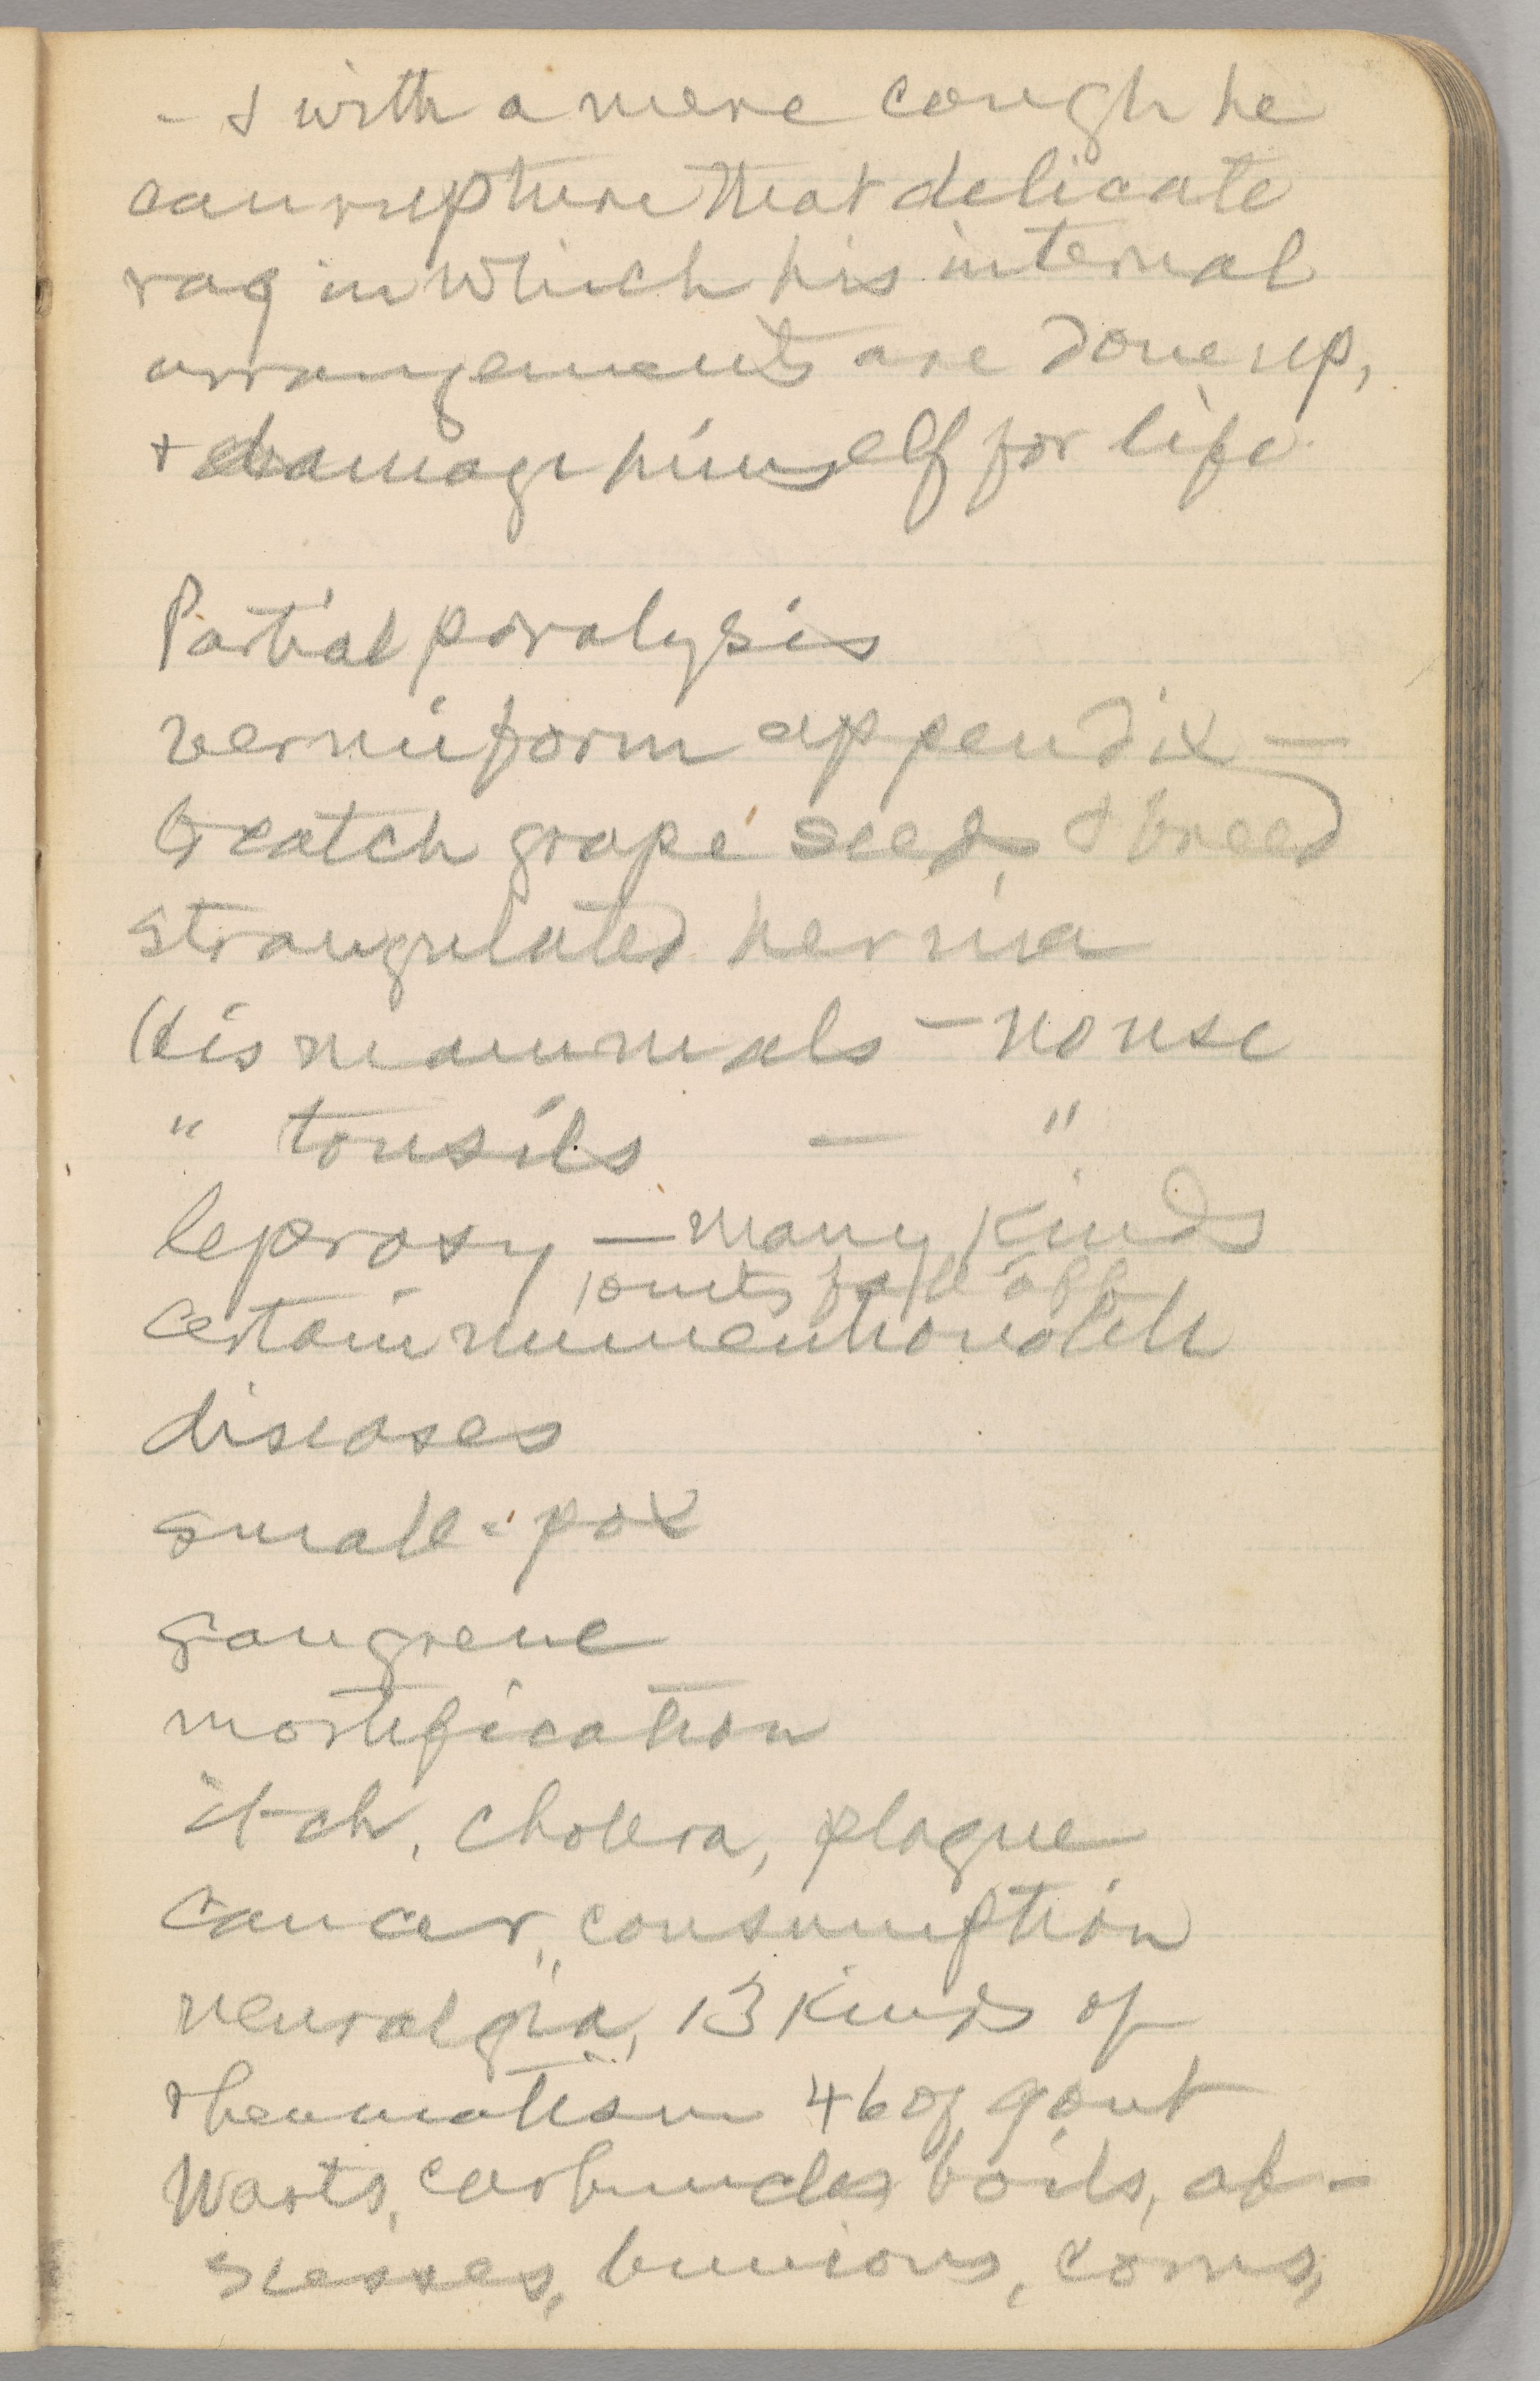 - & with a mere cough he
can rupture that delicate
rag in which his internal
arrangements are done up,
+ damage himself for life.
Partial paralysis
vermiform appendix —
to catch grape seeds & breed
strangulated hernia
His mammals — no use
" tonsils — "
leprosy — many kinds
joints fall off
Certain unmentionable
diseases
small-pox
gangrene
mortification
itch, cholera, plague
Cancer, consumption
neuralgia, 13 kinds of
rheumatism 46 of gout
Warts, carbuncles boils, ab-
scesses, bunions, corns,